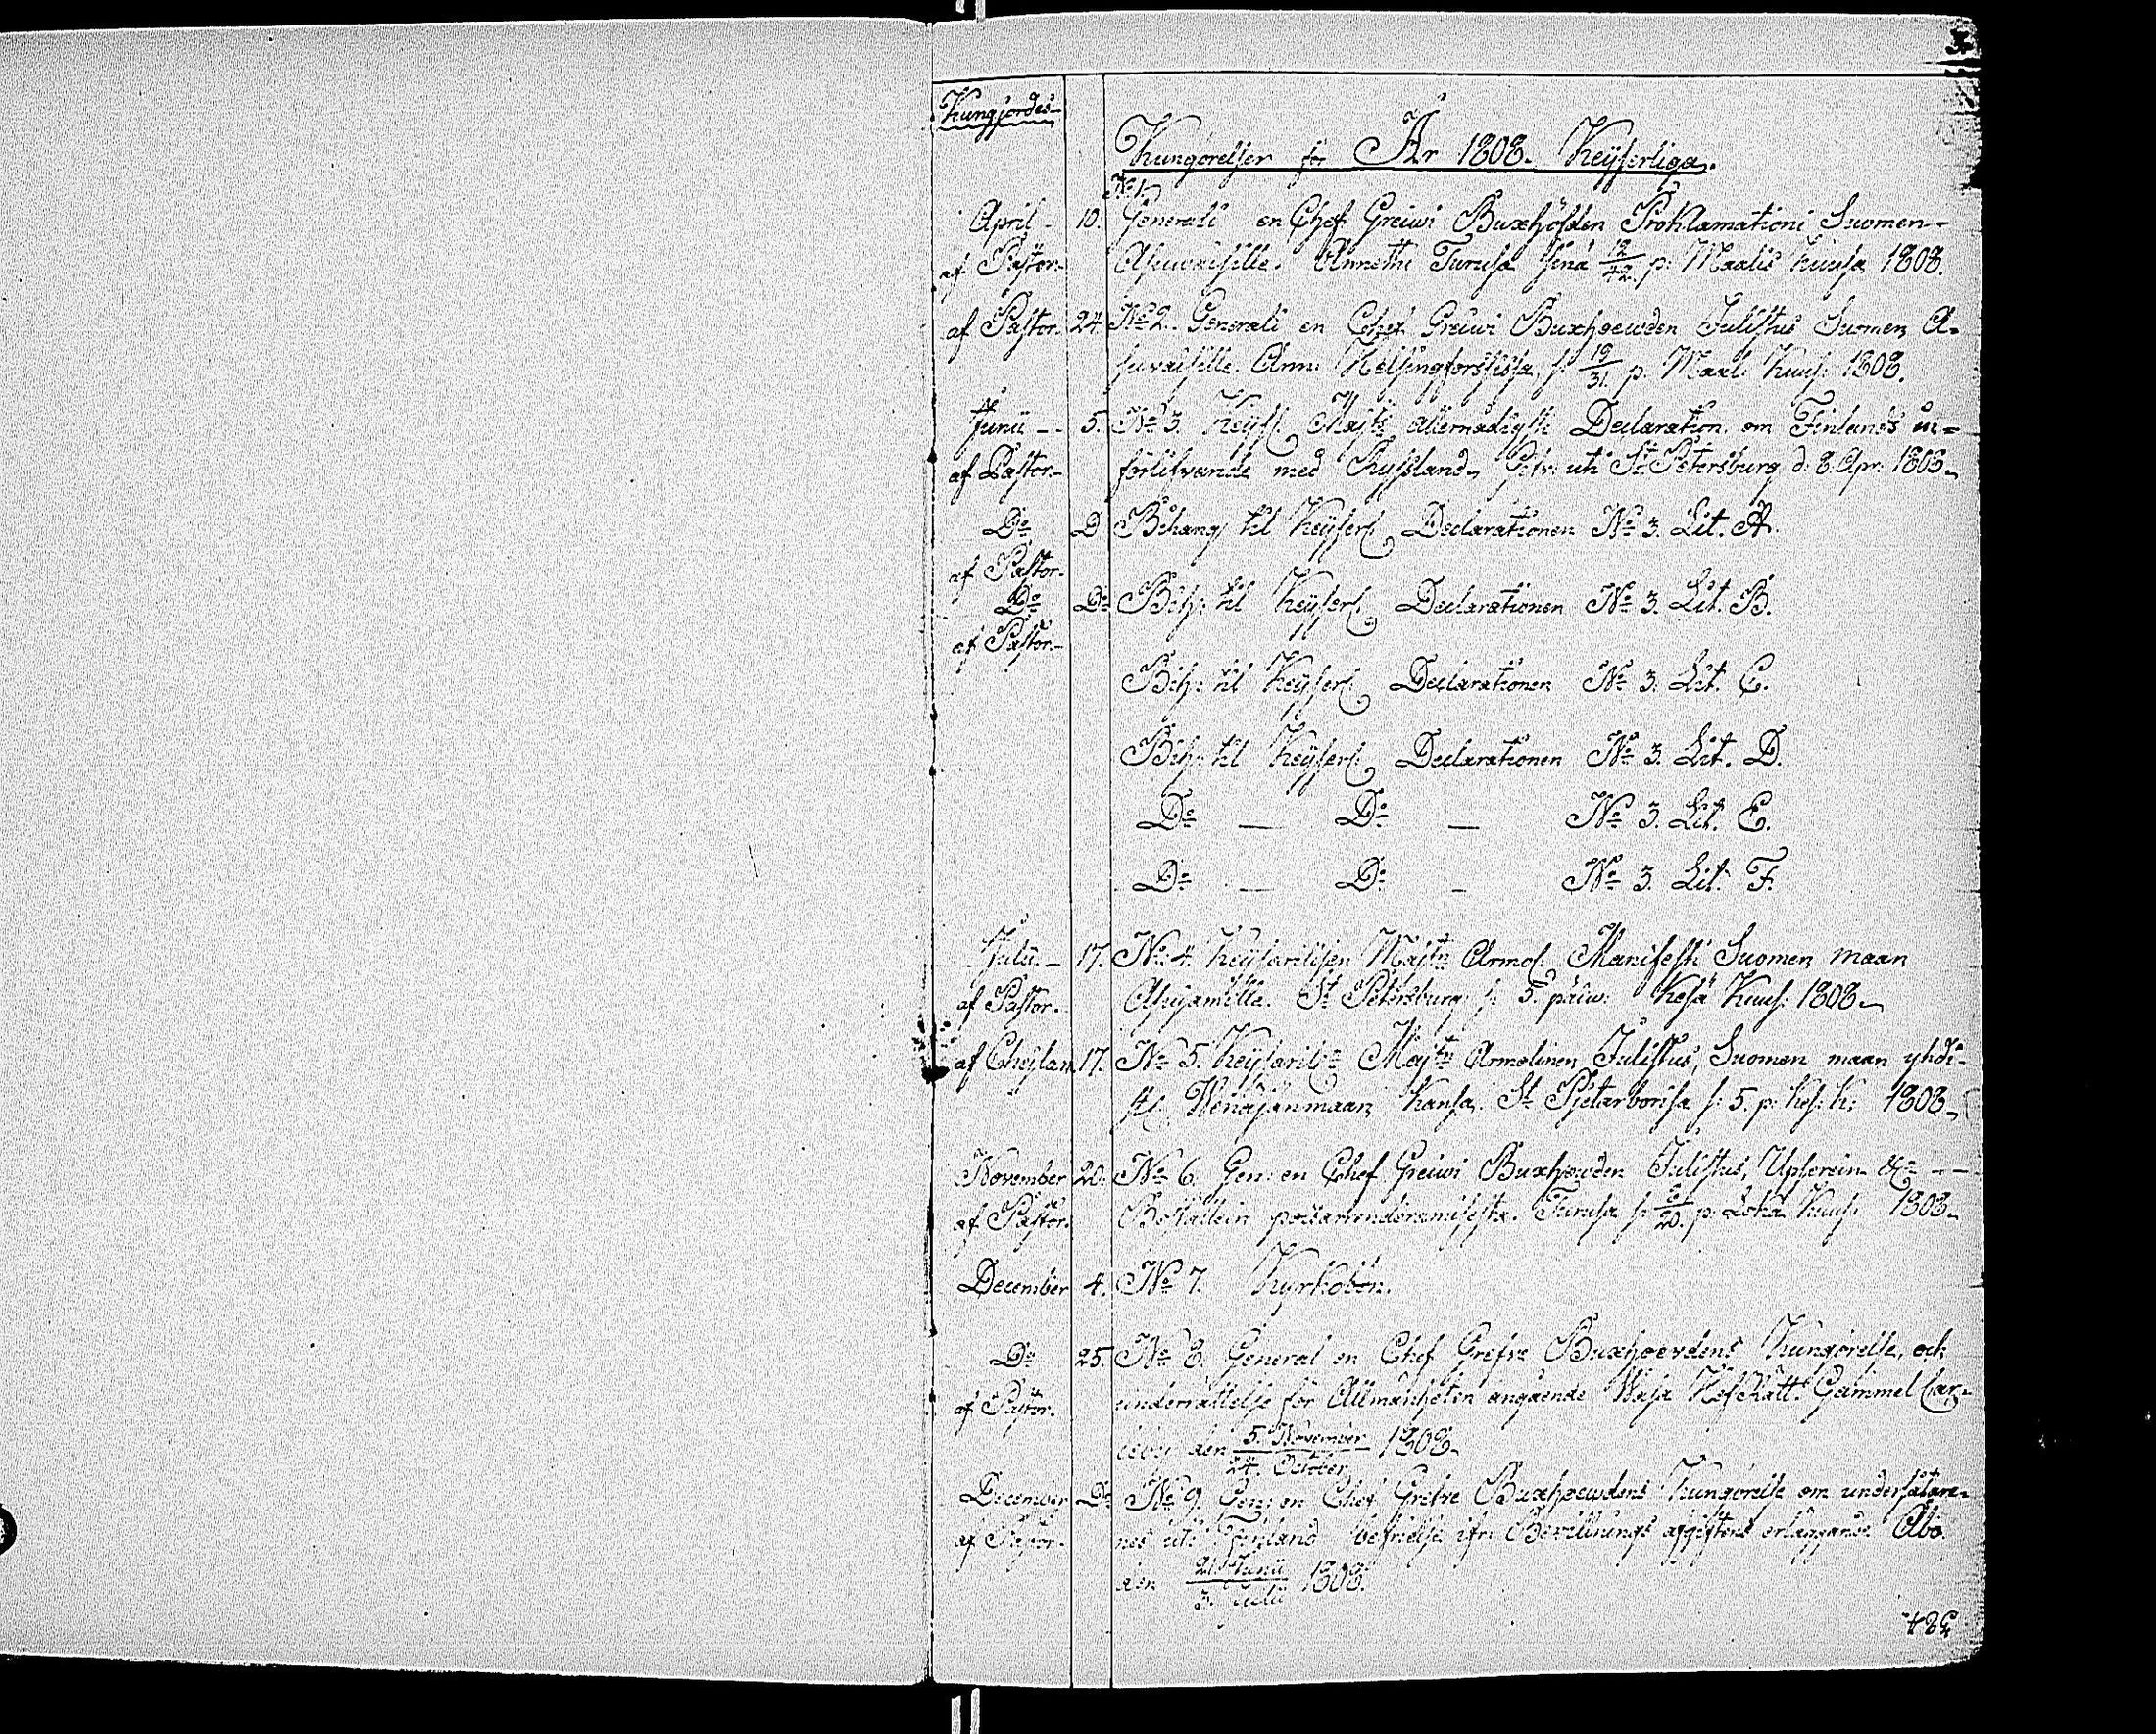 Kungjordes
Kungörelser för År 1808. Keyserliga.
No 1.
April 10. Generali en Chef Greiwi Buxhöfden Proklamationi Suomen
af Pastor. Asuwaisille. Annettu Turusa sinä p: Maalis kuusa 1808.
af Pastor. 24. No 2. Generali en Chef Greiwi Buxhoewden Julistus Suomen A-
suvaisille. Ann: Helsingforssissa, s: 19/31 p. Maal: Kuus: 1808.
Junii 5. No 3. Keyserl. Majts allernådigste Declaration om Finlands in=
af Pastor förlifvande med Ryssland, Gifv: uti St Petersburg d. 8. Apr: 1808.
Do D Bihang til Keyserl. Declarationen No 3. Lit. A.
af Pastor.
Do Do Bih: til Keyserl. Declarationen No 3. Lit. B.
af Pastor.
Bih: til Keyserl. Declarationen No 3. Lit. C.
Bih: til Keyserl. Declarationen No 3. Lit. D.
Do — Do — No 3. Lit. E.
Do — Do — No 3. Lit. F.
Julii 17. No 4. Keysarilisen Majtn Armol. Manifesti Suomen maan
af Pastor. Asujamille. St Petersburg s: 5. päiw: Kesä Kuus: 1808
af Cheylan 17. No 5. Keysariln Majtn Armolinen Julistus, Suomen maan yhdi-
st: Wenäjänmaan kansa. St Pjetarborisa s: 5. p: kes: k: 1808
November 20. No 6. Gen: en Chef Greiwi Buxhoewden Julistus, Upserein &c
af Pastor. Boställein poisarrenderamisesta. Turusa s: 8/20. p: Loka Kuus: 1808
December 4. No 7. Kyrkobön.
Do 25. No 8. General en Chef Grefve Buxhoevdens Kungörelse, och
af Pastor. underrättelse för Allmänheten angående Wasa HofRätt. Gammel Car-
leby den 5. November/24. October 1808
December Do No 9. Gen: en Chef Grefve Buxhoewdens Kungörelse om undersåtare-
af Pastor. nes uti Finland befrielse ifr: Bevillnings afgiftens erläggande. Åbo
den 21. Junii/3. Julii 1808.
384